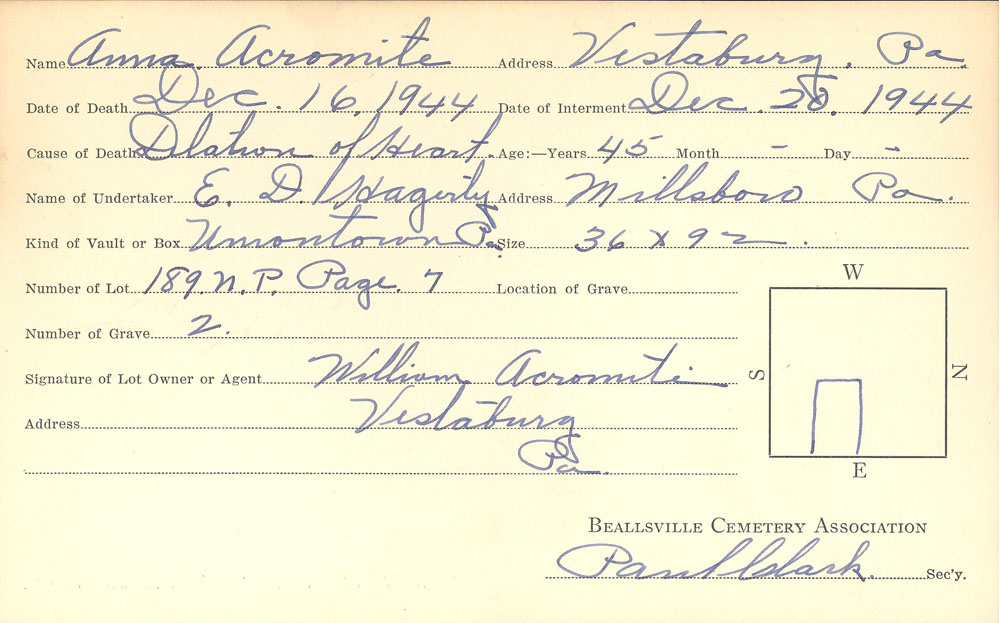 Name Anna Acromite Address Vestaburg, Pa.
Date of Death Dec. 16, 1944 Date of Interment Dec. 20, 1944
Cause of Death Dlation of Heart. Age:—Years 45 Month - Day -
Name of Undertaker E. D. Hagerty Address Millsboro Pa.
Kind of Vault or Box Uniontown Pa. Size 36 x 92.
Number of Lot 189 N.P. Page 7 Location of Grave
Number of Grave 2.
W
S
N
E
Signature of Lot Owner or Agent William Acromite
Address Vestaburg
Pa.
BEALLSVILLE CEMETERY ASSOCIATION
Paul Clark. Sec'y.